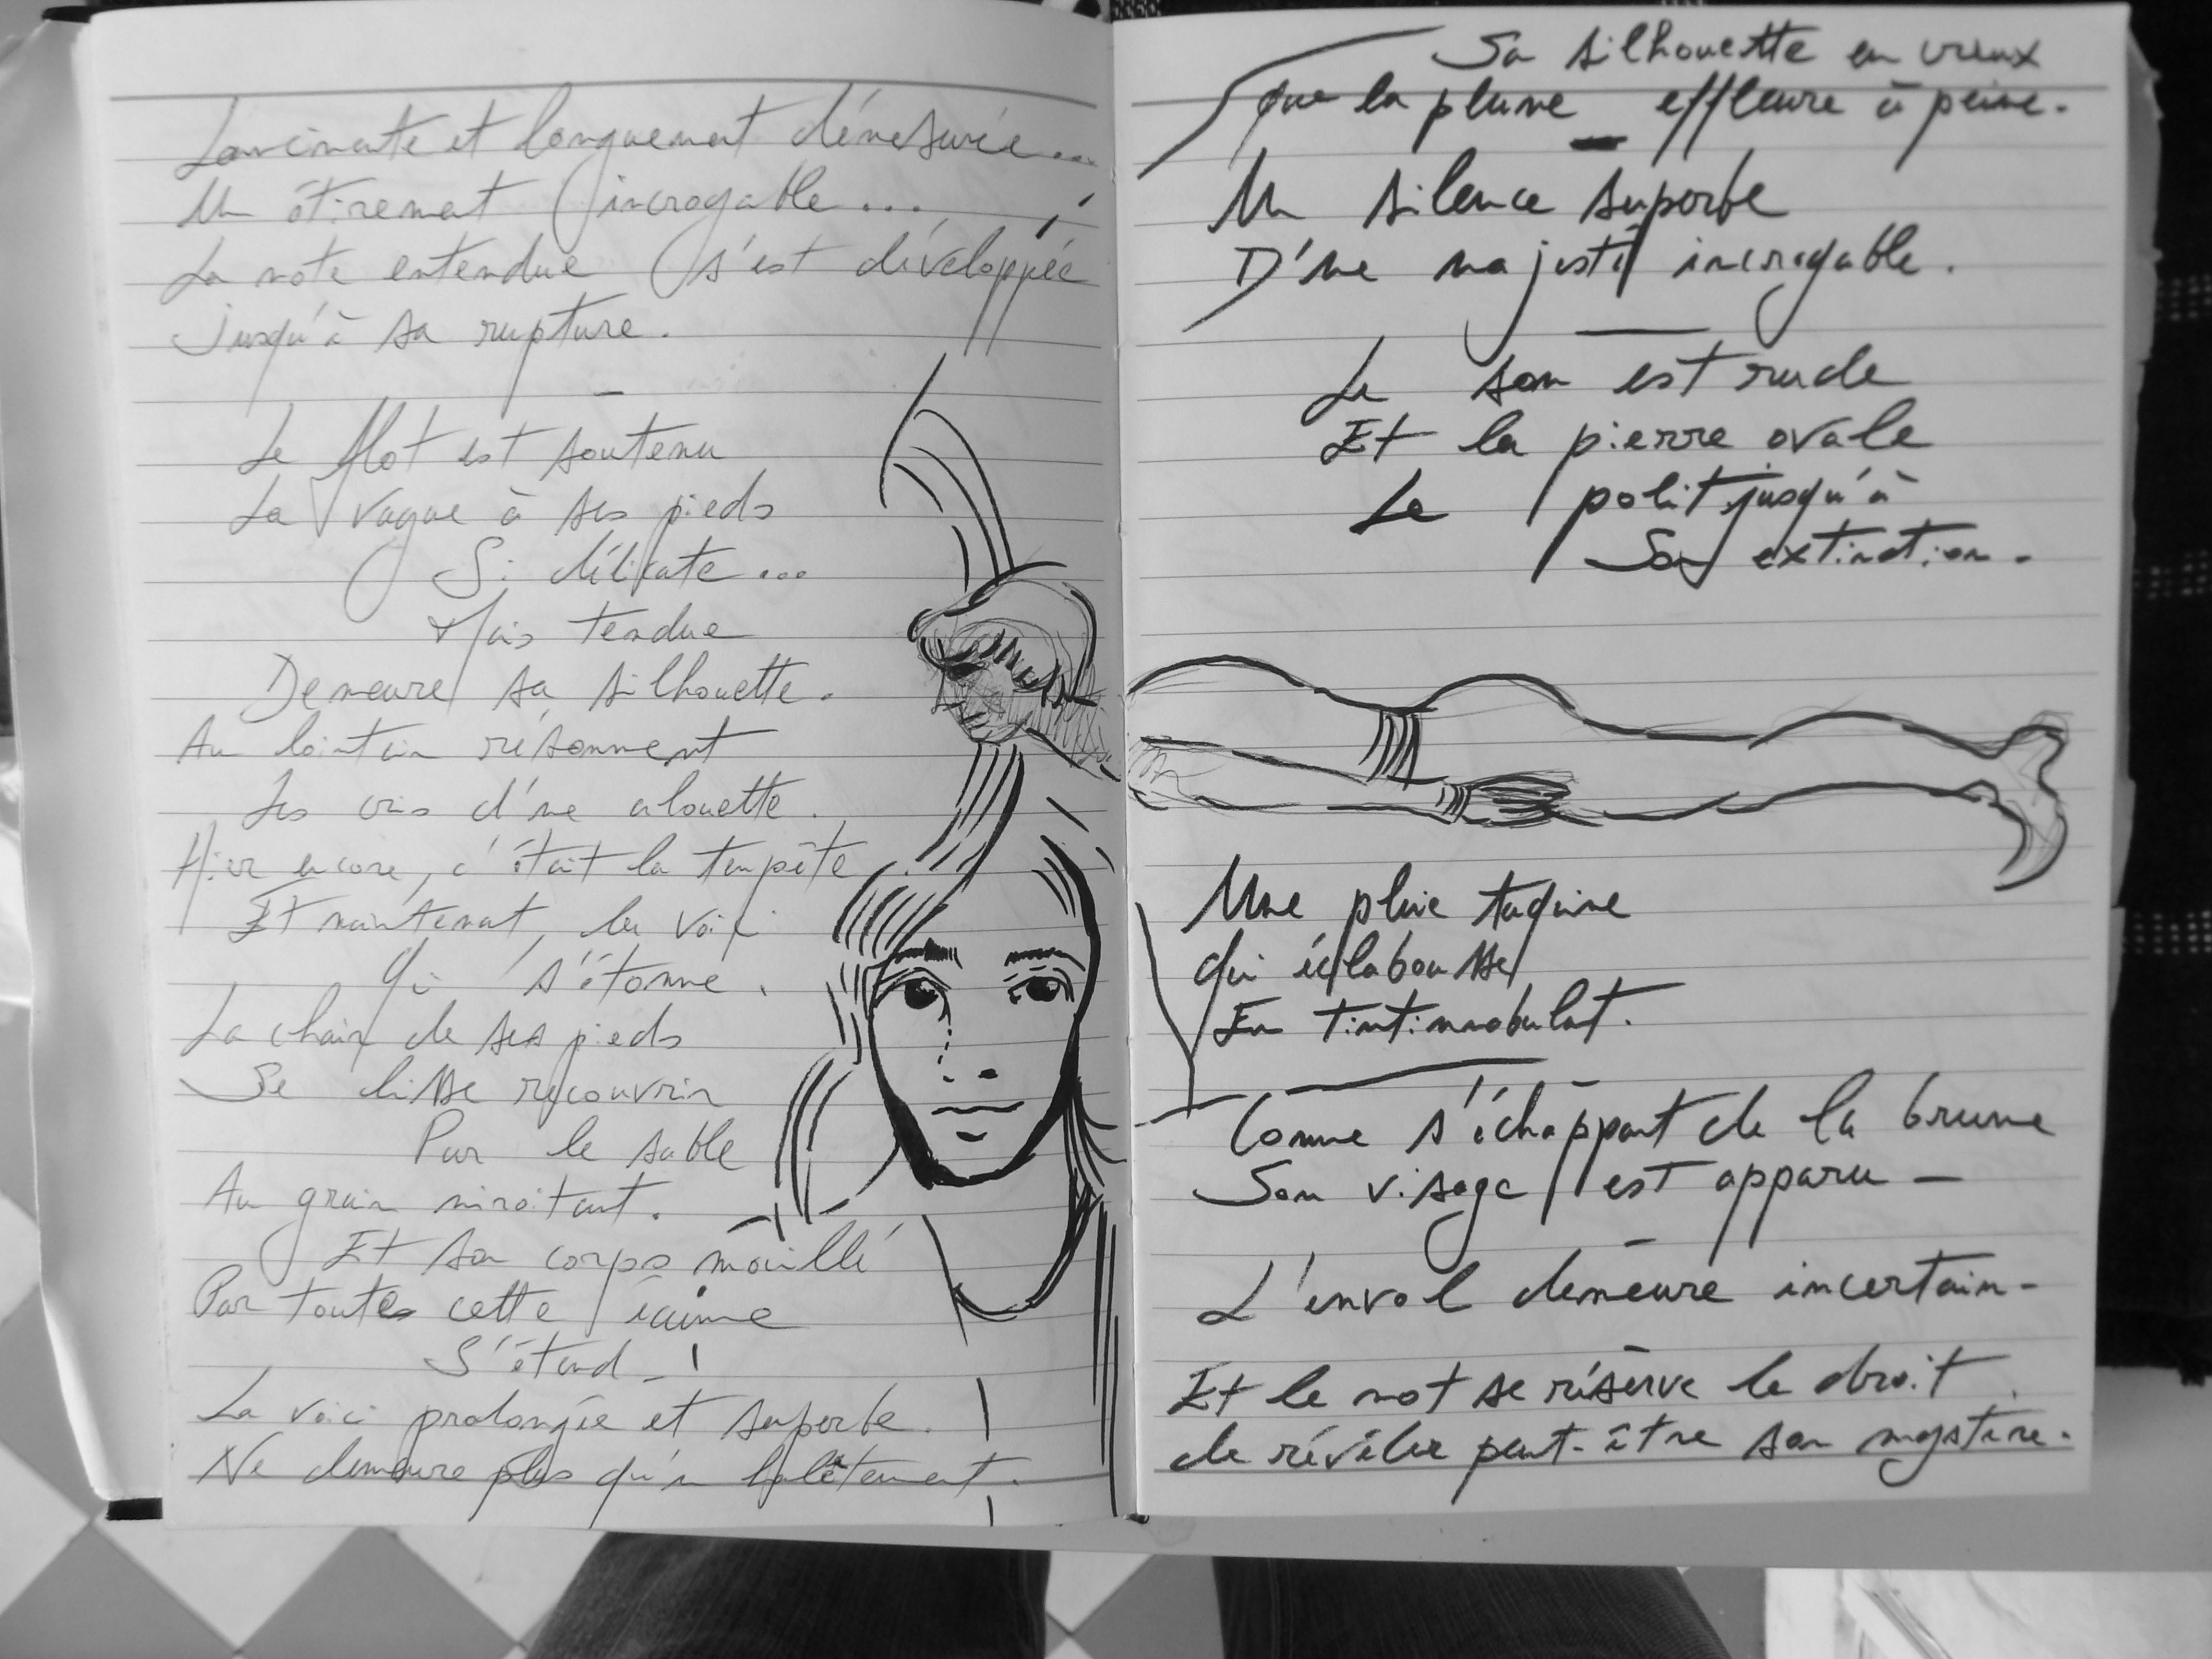 Lancinante et longuement démesurée...
Un étirement incroyable...
La note entendue s'est développée
jusqu'à sa rupture.
Le flot est soutenu
La vague à ses pieds
Si délicate...
Mais tendue
Demeure sa silhouette.
Au lointain résonnent
Les cris d'une alouette.
Hier encore, c'était la tempête
Et maintenant, la voici
Qui s'étonne.
La chair de ses pieds
Se laisse recouvrir
Par le sable
Au grain miroitant.
Et son corps mouillé
Par toutes cette écume
S'étend_!
La voici prolongée et superbe.
Ne demeure plus qu'un halètement.
Sa silhouette en creux
Que la plume_ effleure à peine.
Un silence superbe
D'une majesté incroyable.
Le son est rude
Et la pierre ovale
Le polit jusqu'à
Son extinction.
Une pluie taquine
qui éclabousse
En tintinnabulant.
Comme s'échappant de la brume
Son visage est apparu -
L'envol demeure incertain-
Et le mot se réserve le droit
de révéler peut-être son mystère.